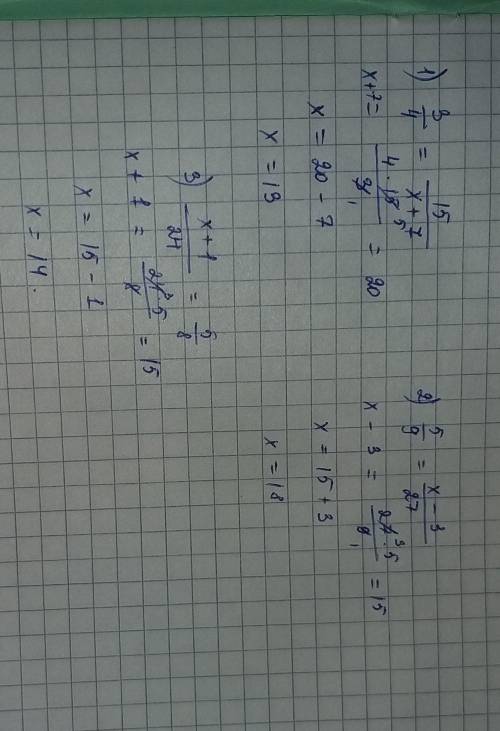 1) 3/4 = 15/(x+7)
x+7 = (4·15⁵)/3₁ = 20
x = 20 - 7
x = 13
2) 5/9 = (x-3)/27
x - 3 = (27³·5)/9₁ = 15
x = 15 + 3
x = 18
3) (x+1)/24 = 5/8
x + 1 = (24³·5)/8 = 15
x = 15 - 1
x = 14.